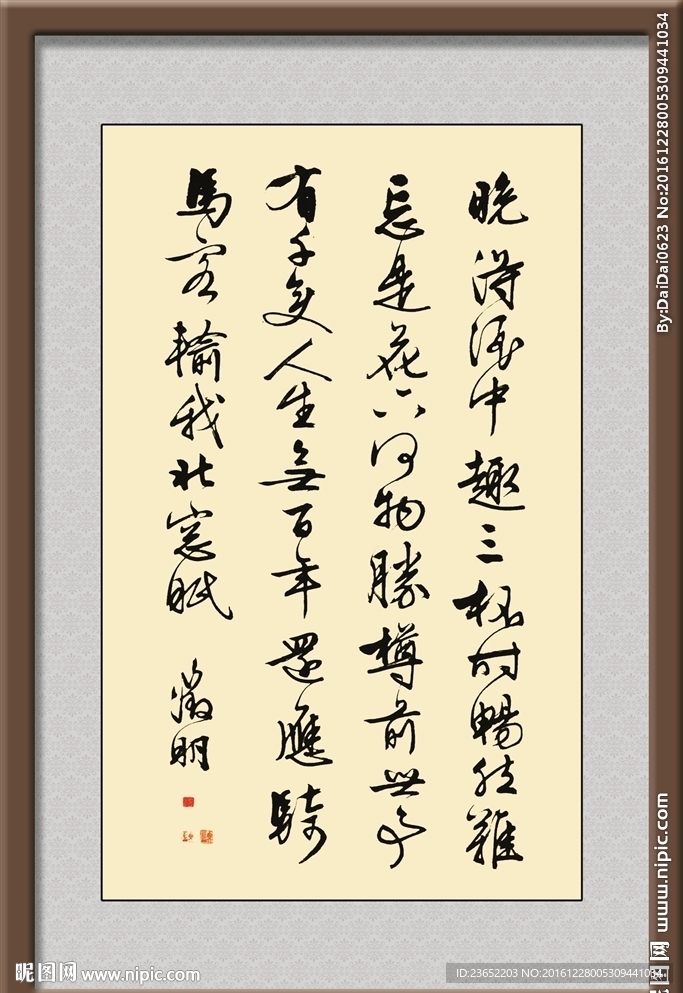 晚得酒中趣三杯時暢然難
忘是花下何物勝樽前世事
有千變人生無百年還應騎
馬客輸我北窓眠
徵明
By:DaiDai0623 No:20161228005309441034
昵图网 www.nipic.com
昵图网 www.nipic.com
ID:23652203 NO:20161228005309441034